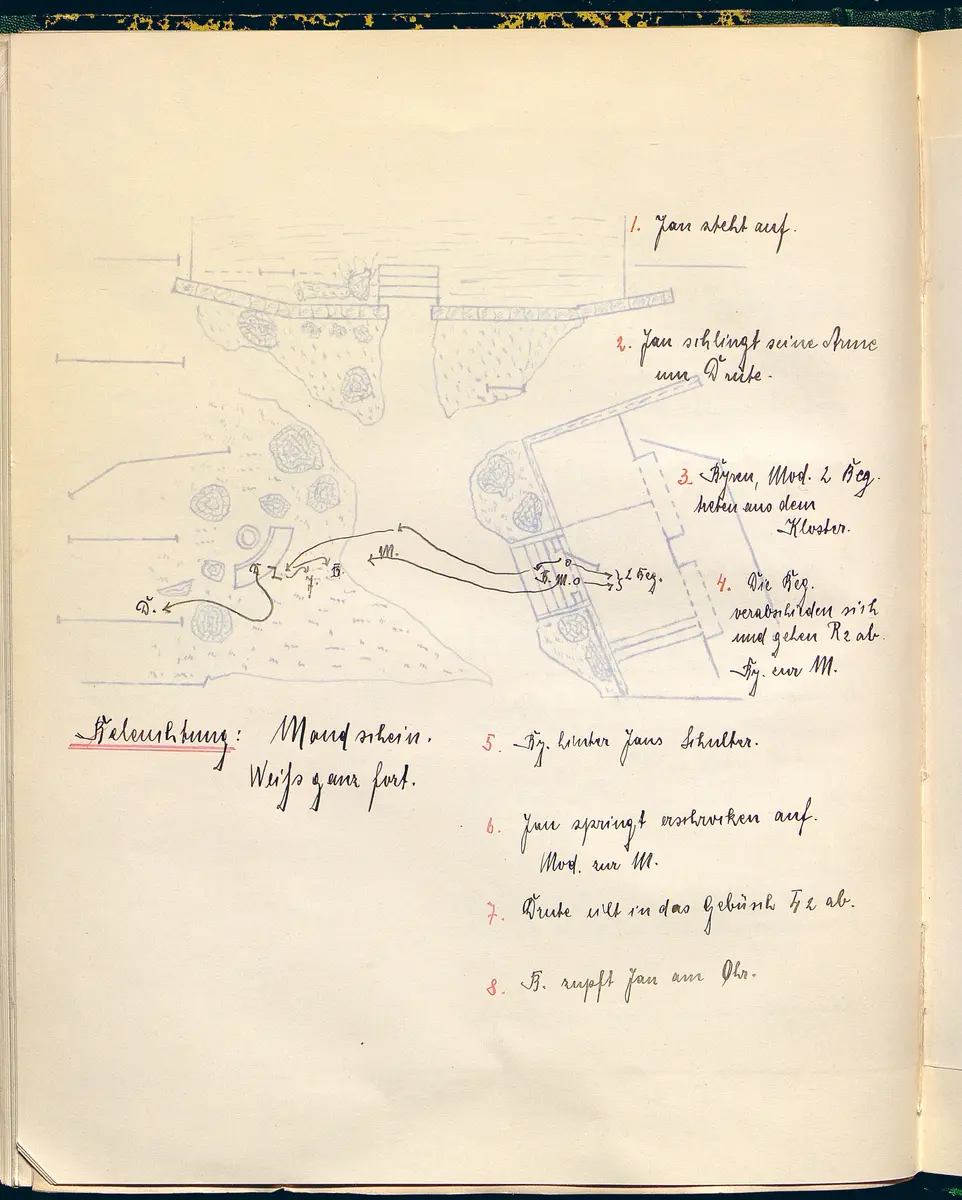 1. Jan steht auf.
2. Jan schlingt seine Arme
um Trute.
3. Byren, Mod. 2 Beg.
treten aus dem
Kloster.
M.
B.
J.
B. M.
2 Beg.
T.
4. Die Beg.
verabschieden sich
und gehen R2 ab.
By. zur M.
Beleuchtung: Mondschein.
Weiss ganz fort.
5. By. hinter Jans Schulter.
6. Jan springt erschrocken auf.
Mod. zur M.
7. Trute eilt in das Gebüsch L2 ab.
8. B. zupft Jan am Ohr.